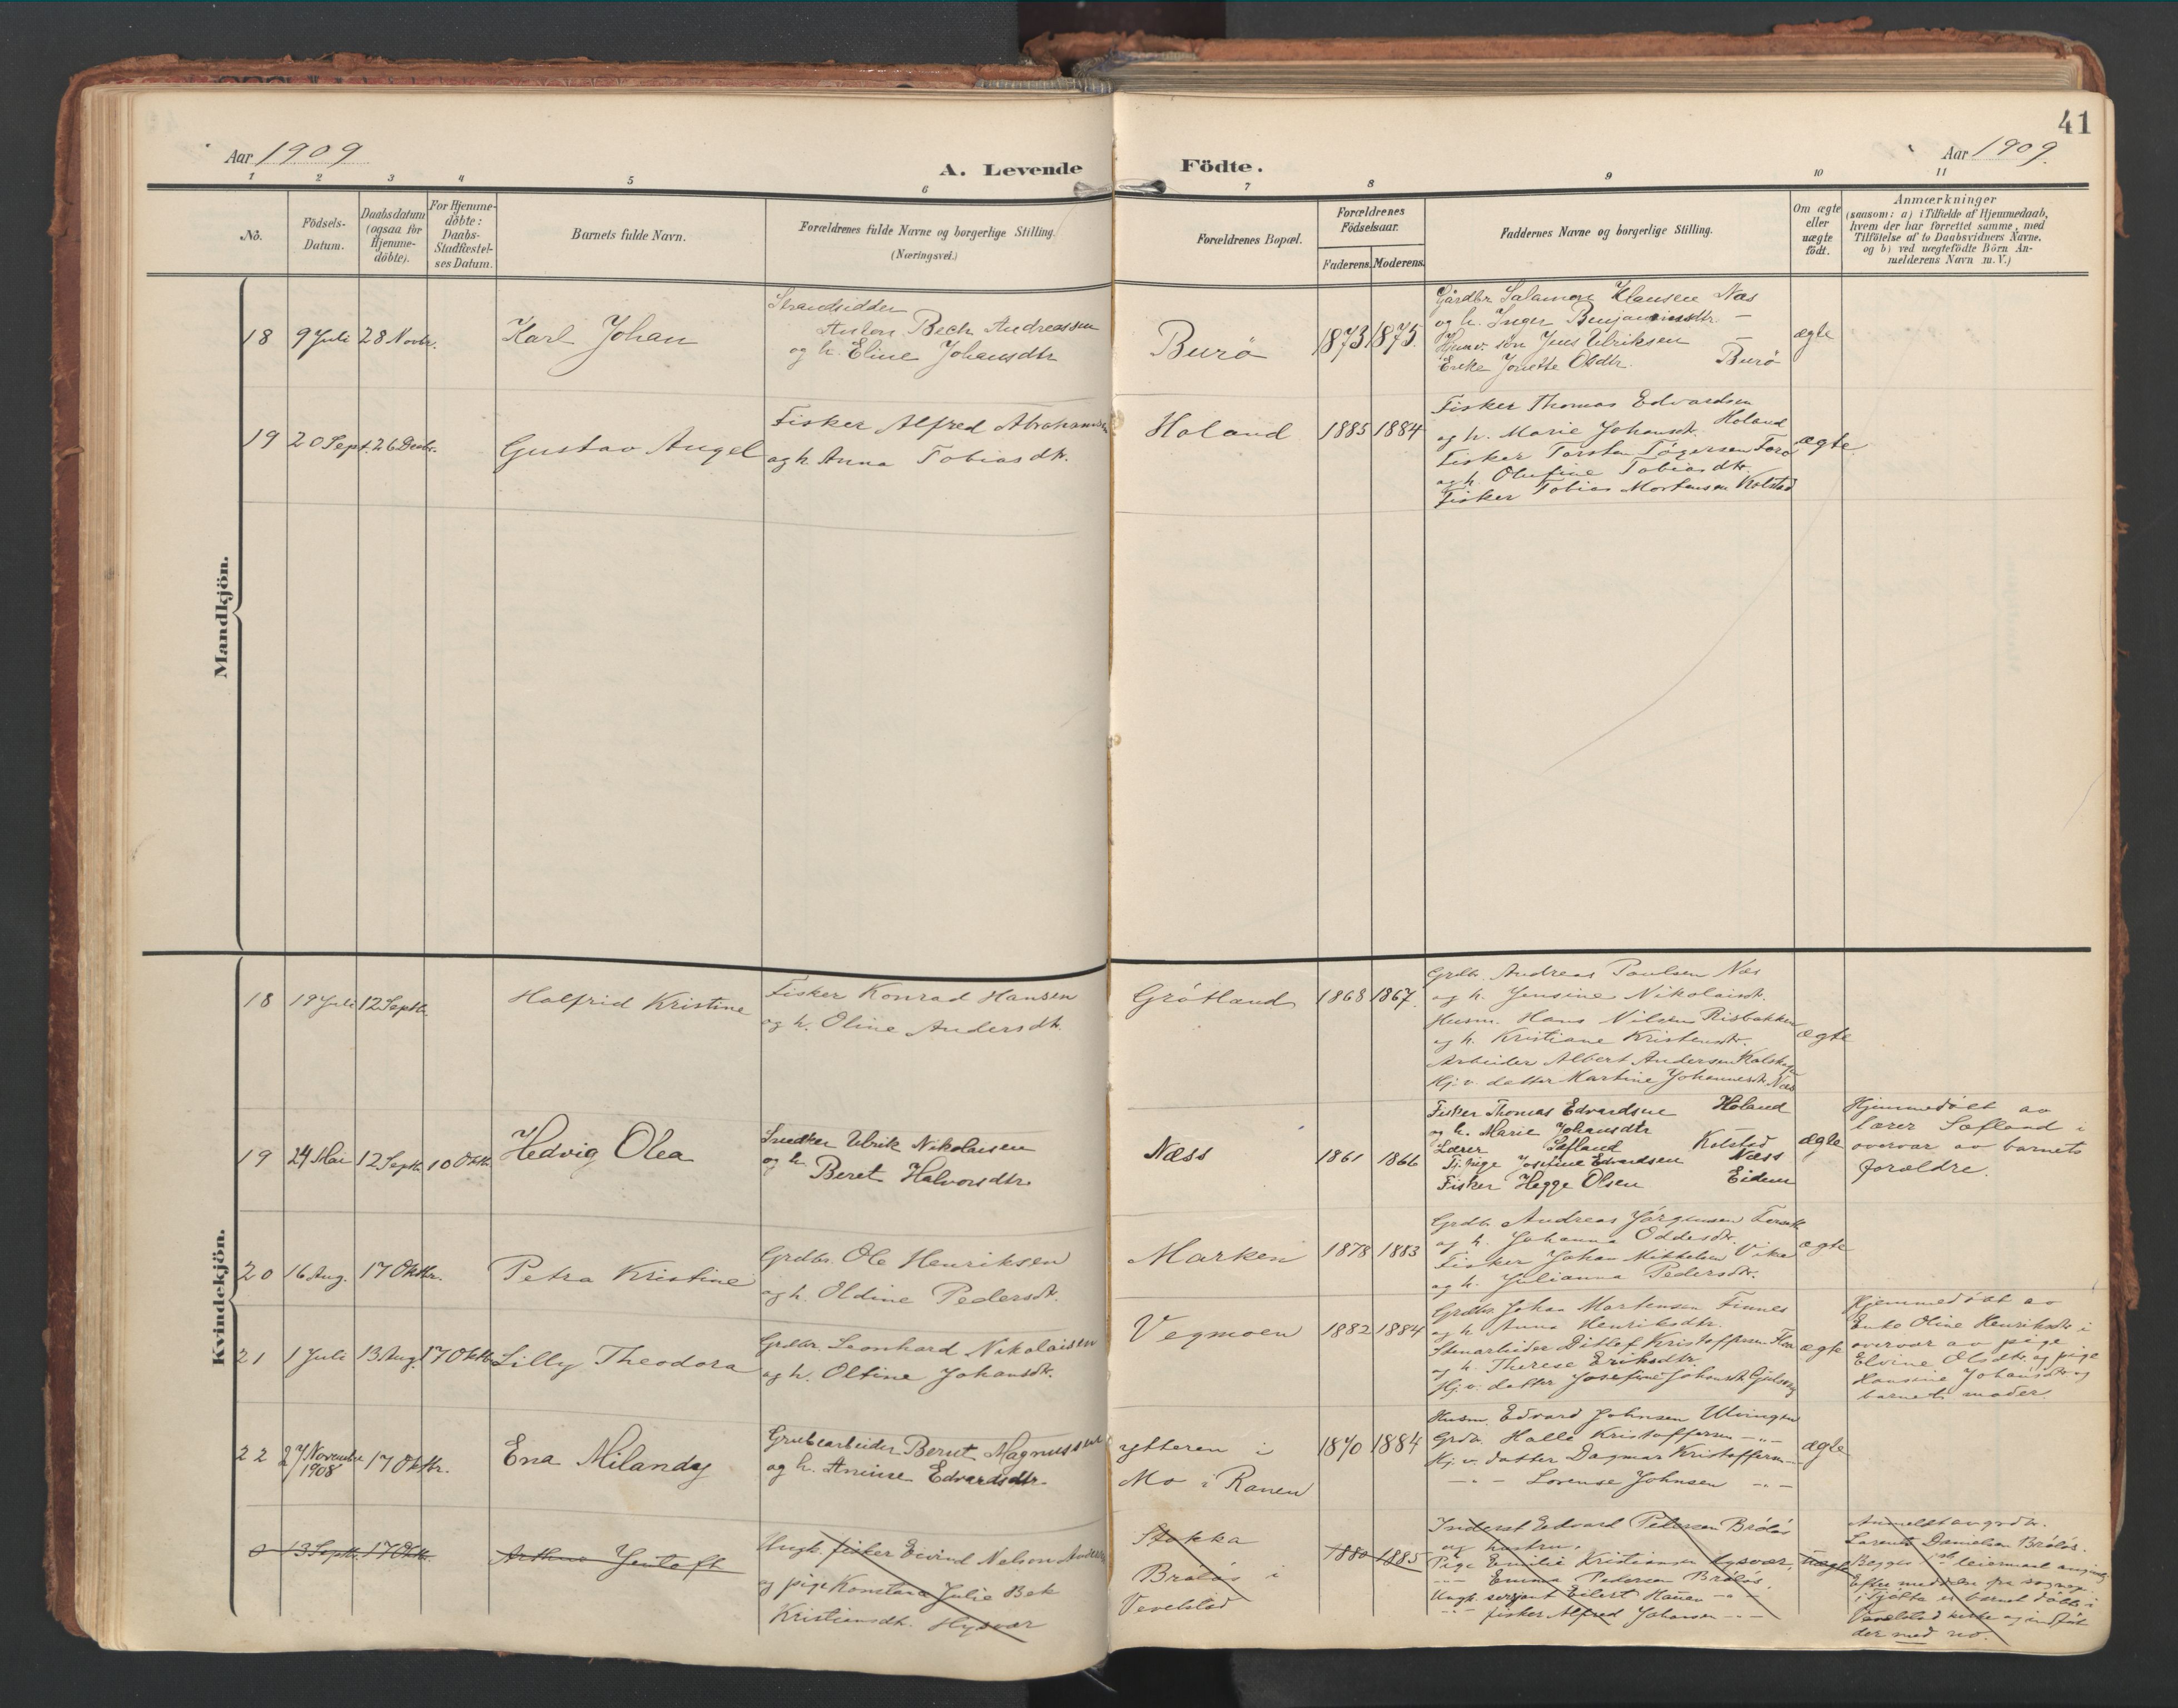 41
Aar 1909
A. Levende Födte.
Aar 1909.
1 2 3 4 5 6 7 8 9 10 11
No.
Födsels-
Datum.
Daabsdatum
(ogsaa for
Hjemme-
döbte).
For Hjemme-
döbte:
Daabs-
Stadfæstel-
ses Datum.
Barnets fulde Navn.
Forældrenes fulde Navne og borgerlige Stilling.
(Næringsvei.)
Forældrenes Bopæl.
Forældrenes
Födselsaar.
Faderens. Moderens.
Faddernes Navne og borgerlige Stilling.
Om ægte
eller
uægte
födt.
Anmærkninger
(saasom: a) i Tilfælde af Hjemmedaab,
hvem der har forrettet samme, med
Tilföielse af to Daabsvidners Navne,
og b) ved uægtefödte Börn An-
melderens Navn m. V.)
Mandkjön.
18 9 Juli 28 Novbr. Karl Johan
Strandsidder
Anton Bech Andreassen
og h. Eline Johansdtr
Burö 1873 1875.
Gårdbr Salamon Klausen Næs
og h. Inger Benjaminsdtr. —
Jens Ulriksen —
Enke Jonette Olsdtr. Burö
ægte
19 20 Sept. 26 Decbr. Gustav Angel
Fisker Alfred Abrahamsen
og h. Anna Tobiasdtr.
Holand 1885 1884
Fisker Thomas Edvardsen
og h. Marie Johansdtr. Holand
Fisker Torsten Tögersen Forö
og h. Olufine Tobiasdtr.
Fisker Tobias Mortensen Kolstad
ægte
Kvindekjön.
18 19 Juli 12 Septb. Halfrid Kristine
Fisker Konrad Hansen
og h. Oline Andersdtr.
Grötland 1868 1867.
Grdbr. Andreas Paulsen Næs
og h. Jensine Nikolaisdtr.
Husm. Hans Nilsen Risbakken
og h. Kristiane Kristensdtr.
Arbeider Albert Andersen
Hj. v. datter Martine Johannesdtr. Næs
ægte
19 24 Mai 12 Septb. 10 Oktb. Hedvig Olea
Snedker Ulrik Nikolaisen
og h. Beret Halvorsdtr.
Næss 1861 1866
Fisker Thomas Edvardsen Holand
og h. Marie Johansdtr —
Lærer Søfland Kolstad
Tj. pige Josefine Edvardsen Næss
Fisker Hegge Olsen Eidem
ægte
Hjemmedöbt av
lærer Søfland i
overvær av barnets
forældre.
20 16 Aug. 17 Oktbr. Petra Kristine
Grdbr. Ole Henriksen
og h. Oldine Pedersdtr.
Marken 1878 1883
Grdb. Andreas Jørgensen
og h. Johanna Oddesdtr.
Fisker Johan Mikkelsen Vika
og h. Julianna Pedersdtr.
ægte
21 1 Juli 13 Aug. 17 Oktb. Lilly Theodora
Grdbr. Leonhard Nikolaisen
og h. Oltine Johansdtr.
Vegmoen 1882 1884
Grdbr. Johan Mortensen Finnes
og h. Anna Henriksdtr.
Stenarbeider Ditlef Kristoffersen
og h. Therese Eriksdtr.
Hj. v. datter Josefine Johansdtr.
ægte
Hjemmedöbt av
Enke Oline Henriksdtr i
overvær av pige
Elvine Olsdtr. og pige
Hansine Johansdtr. og
barnets moder.
22 27 November 1908 17 Oktbr. Ena Milandy
Grubearbeider Bernt Magnussen
og h. Annine Edvardsdtr.
ytteren i
Mo i Ranen
1870 1884
Husm. Edvard Johnsen Ulvingen
Grdb. Halle Kristoffersen —"—
Hj. v. datter Dagmar Kristoffersen —
—"— Lorense Johnsen —"—
ægte
0 13 Septb. 17 Oktb. Arthur Jentoft
Ungk. fisker Eivind Nelson
og pige Konstanse Julie Bek
Kristiansdtr. Hysvær
Stokka
Brålös i
Vevelstad
1880 1885
Inderst Edvard Pedersen Brålös
og hustru.
Pige Emilie Kristiansen Hysvær,
—"— Emma Pedersen Brålös,
Ungk. serjant Eilert Hansen —"—
—"— fisker Alfred Johansen —"—
uægte
Anmeldt av grdbr.
Laurents Danielsen Brålös.
Begges 1st leiermaal
Efter meddelelse fra
i Tjötta er barnet döbt i
Vevelstad kirke og indfört
der med no.